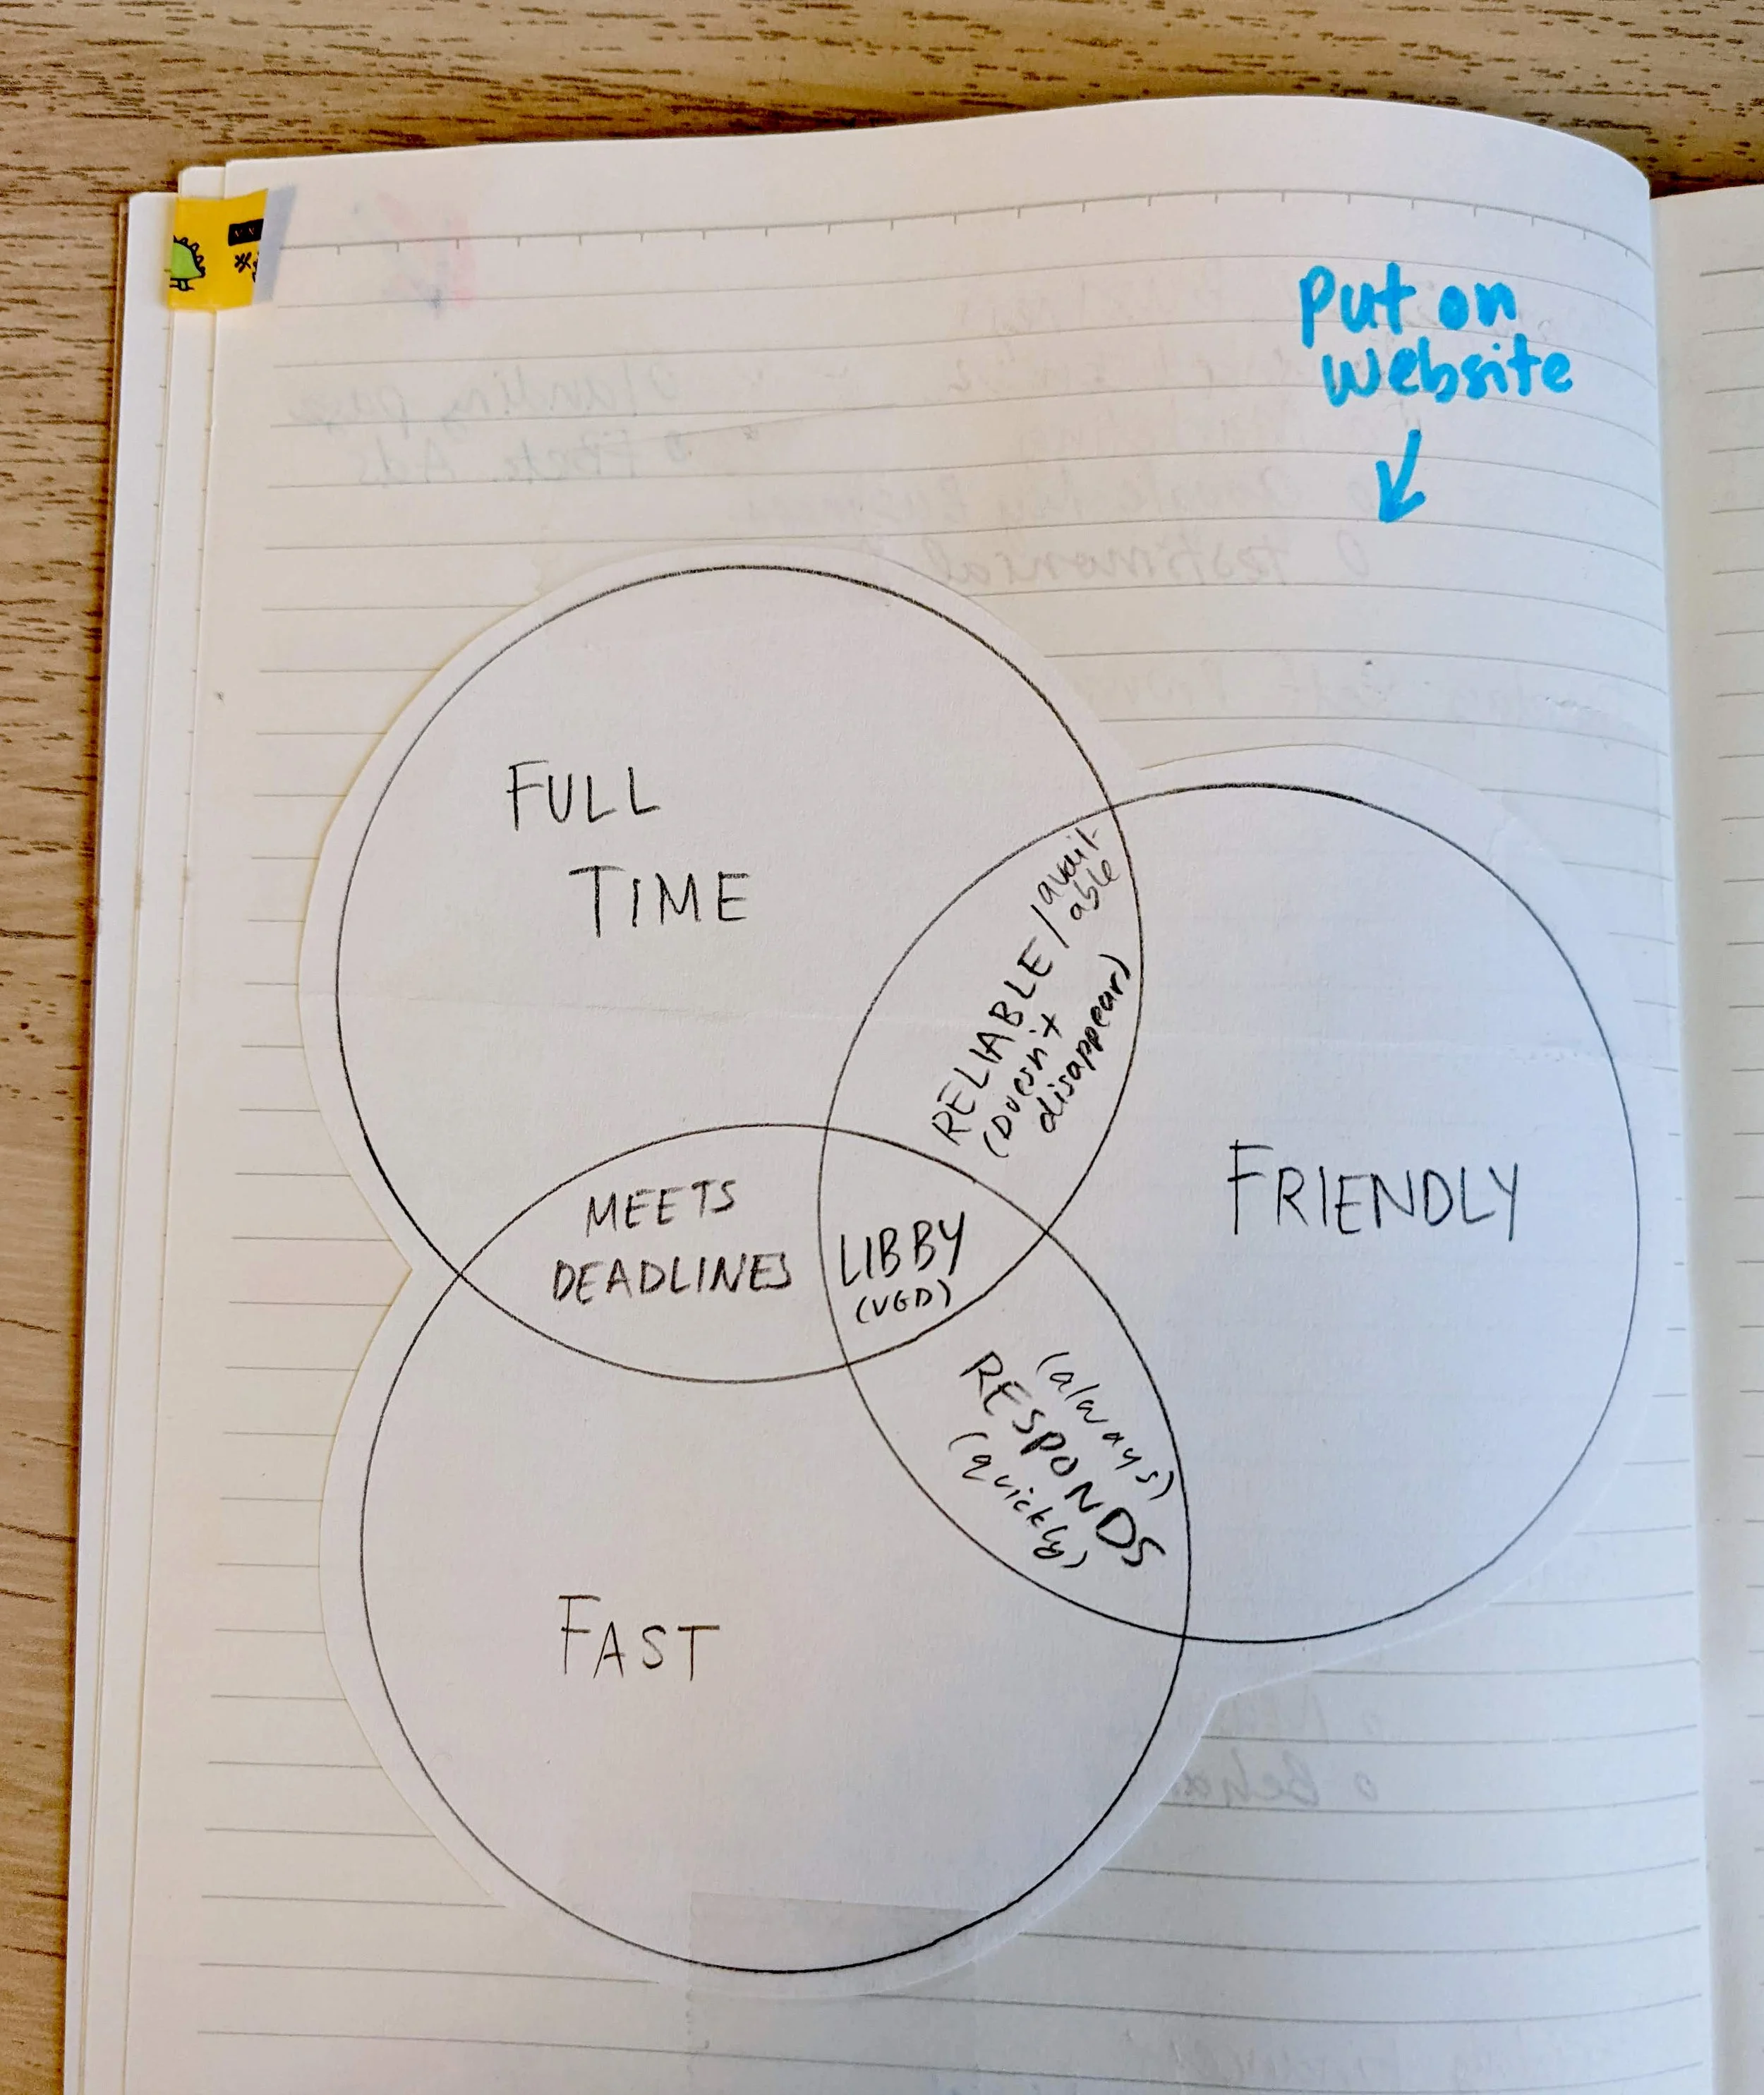 Put on
website
FULL
TIME
RELIABLE / avail-
able
(Doesn't
disappear)
FRIENDLY
MEETS
DEADLINES
LIBBY
(VGD)
(always)
RESPONDS
(quickly)
FAST